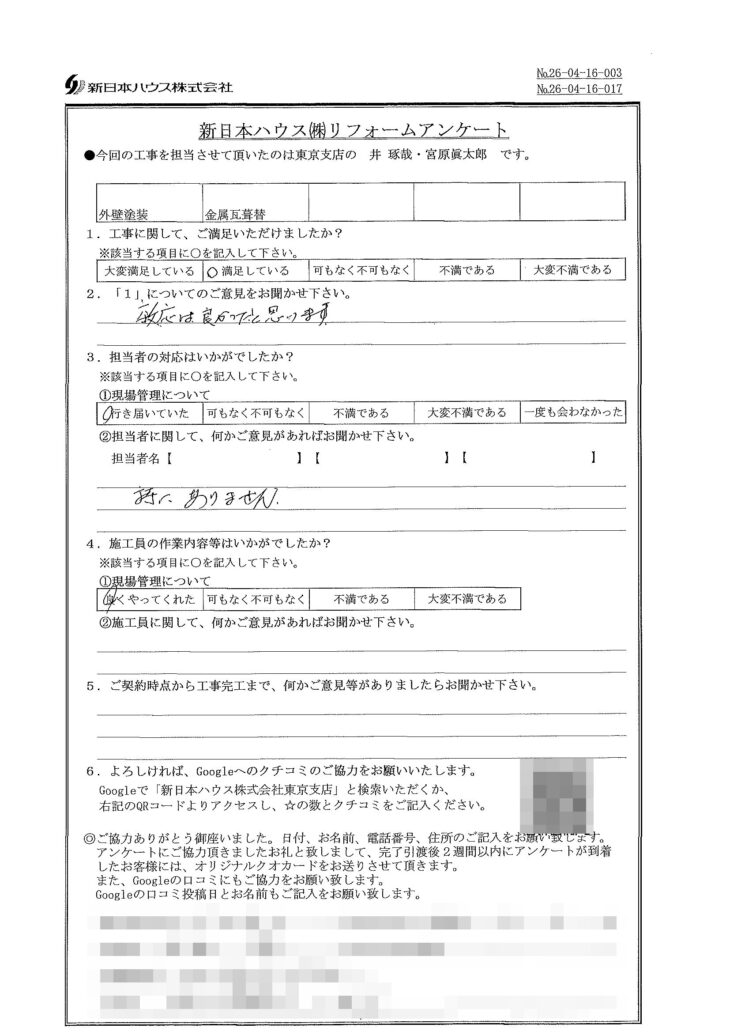 新日本ハウス株式会社
No.26-04-16-003
No.26-04-16-017
新日本ハウス㈱リフォームアンケート
●今回の工事を担当させて頂いたのは東京支店の 井 琢哉・宮原眞太郎 です。
外壁塗装 金属瓦葺替
1．工事に関して、ご満足いただけましたか？
※該当する項目に○を記入して下さい。
大変満足している ○ 満足している 可もなく不可もなく 不満である 大変不満である
2．「1」についてのご意見をお聞かせ下さい。
対応は良かったと思います
3．担当者の対応はいかがでしたか？
※該当する項目に○を記入して下さい。
①現場管理について
行き届いていた 可もなく不可もなく 不満である 大変不満である 一度も会わなかった
②担当者に関して、何かご意見があればお聞かせ下さい。
担当者名【 】【 】【 】
特に ありません.
4．施工員の作業内容等はいかがでしたか？
※該当する項目に○を記入して下さい。
①現場管理について
良くやってくれた 可もなく不可もなく 不満である 大変不満である
②施工員に関して、何かご意見があればお聞かせ下さい。
5．ご契約時点から工事完工まで、何かご意見等がありましたらお聞かせ下さい。
6．よろしければ、Googleへのクチコミのご協力をお願いいたします。
Googleで「新日本ハウス株式会社東京支店」と検索いただくか、
右記のQRコードよりアクセスし、☆の数とクチコミをご記入ください。
◎ご協力ありがとう御座いました。日付、お名前、電話番号、住所のご記入をお願い致します。
アンケートにご協力頂きましたお礼と致しまして、完了引渡後2週間以内にアンケートが到着
したお客様には、オリジナルクオカードをお送りさせて頂きます。
また、Googleの口コミにもご協力をお願い致します。
Googleの口コミ投稿日とお名前もご記入をお願い致します。